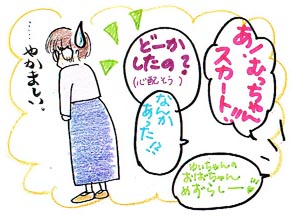 あ!むっちゃん
スカート!!
どーか
したの?
(心配そう)
なんか
あった!?
おばちゃん
めずらしー♥
……
やかましい。